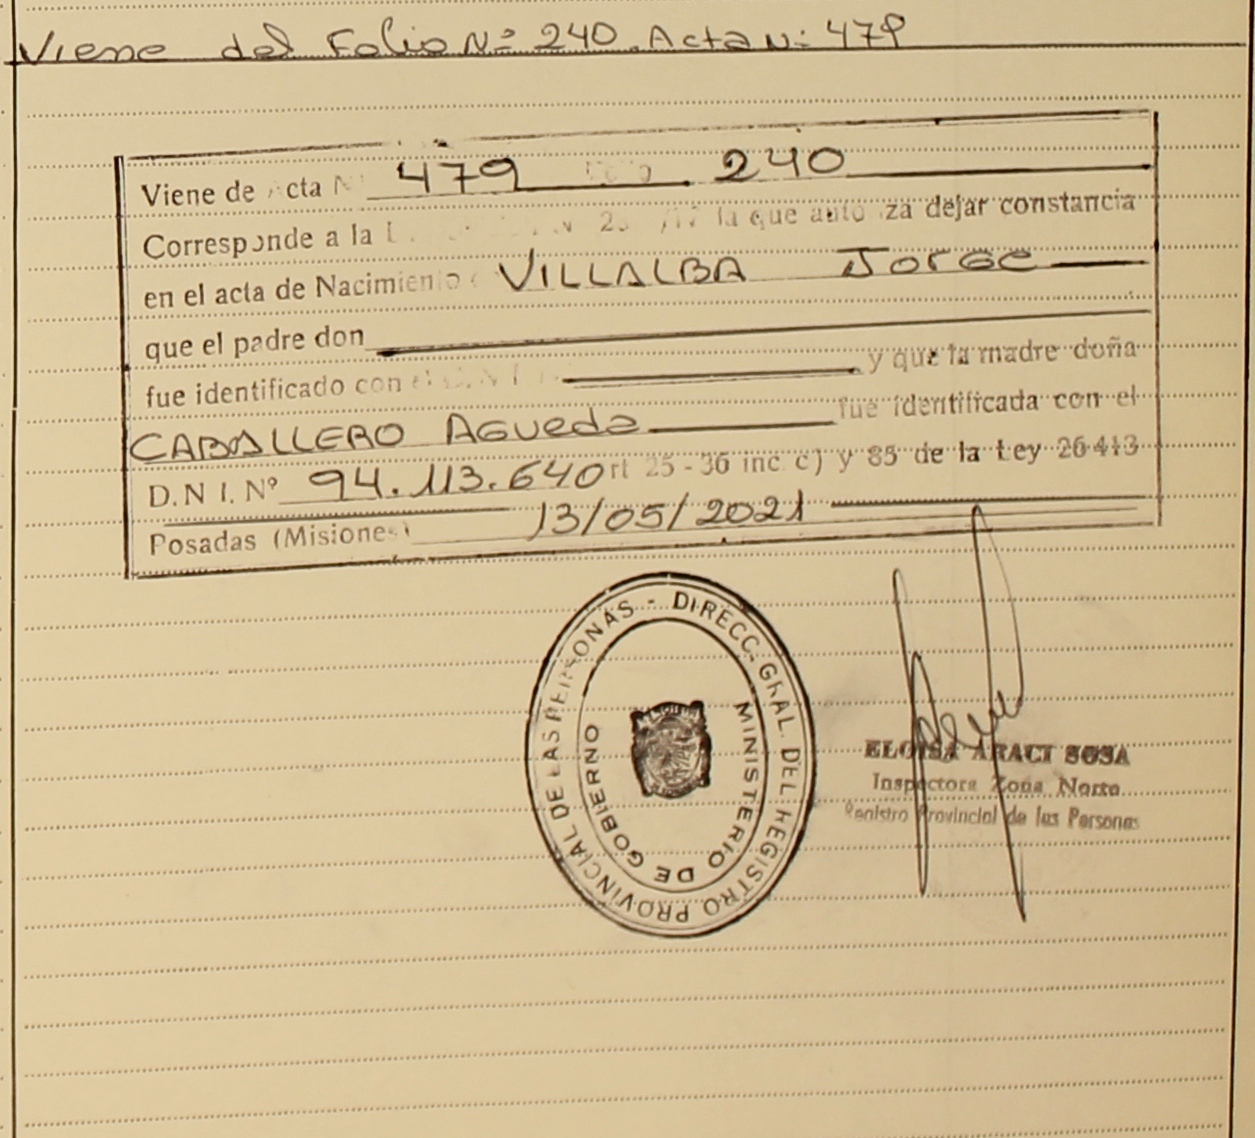 Viene del Folio Nº 240. Acta Nº 479
Viene de Acta N 479 Folio 240
Corresponde a la la que autoriza dejar constancia
en el acta de Nacimiento VILLALBA Jorge
que el padre don
fue identificado con el D.N.I. y que la madre doña
CABALLERO Agueda fue identificada con el
D.N.I. Nº 94.113.640 rt 25 - 36 inc c) y 85 de la Ley 26413
Posadas (Misiones) 13/05/2021
DIRECC. GRAL. DEL REGISTRO PROVINCIAL DE LAS PERSONAS -
MINISTERIO DE GOBIERNO
ELOISA ARACI SOSA
Inspectora Zona Norte
Registro Provincial de las Personas